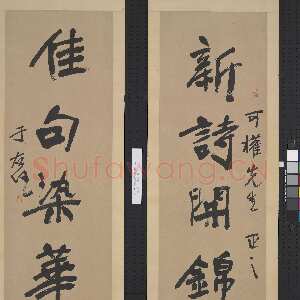 可權先生正之
新詩開錦
佳句染華
于右任
Shufawang.cn